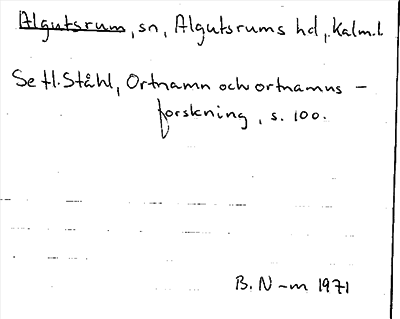 Algutsrum, sn, Algutsrums hd, Kalm.l
Se H. Ståhl, Ortnamn och ortnamns-
forskning, s. 100.
B. N-m 1971